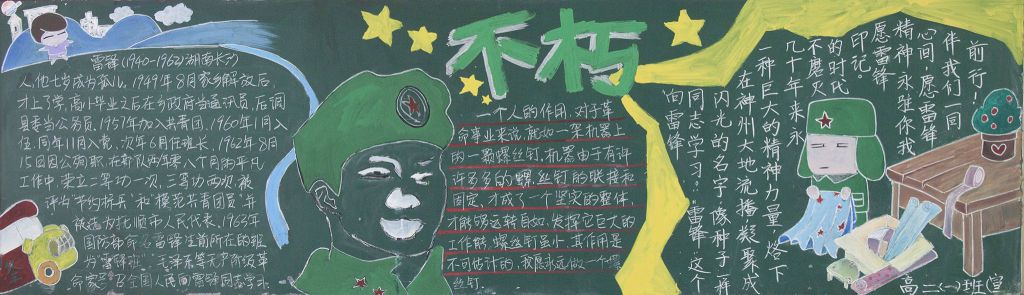 不朽
雷锋(1940-1962)湖南长沙
人,他七岁成为孤儿。1949年8月家乡解放后,
才上了学,高小毕业之后在乡政府当通讯员,后调
县委当公务员,1957年加入共青团,1960年1月入
伍,同年11月入党,次年6月任班长,1962年8月
15日因公殉职,在部队两年零八个月的平凡
工作中,荣立二等功一次,三等功两次,被
评为"节约标兵"和"模范共青团员",并
被选为抚顺市人民代表。1963年
国防部命名雷锋生前所在的班
为"雷锋班",毛泽东等无产阶级革
命家号召全国人民向雷锋同志学习。
一个人的作用,对于革
命事业来说,就如一架机器上
的一颗螺丝钉,机器由于有许
许多多的螺丝钉的联接和
固定,才成了一个坚实的整体,
才能够运转自如,发挥它巨大的
工作能,螺丝钉虽小,其作用是
不可估计的,我愿永远做一个螺
丝钉.
向雷锋
同志学习。"雷锋"这个
闪光的名字,像种子一样
在神州大地流播凝聚成
一种巨大的精神力量,烙下
几十年来永
不磨灭
的时代
印记。
愿雷锋
精神永驻你我
心间,愿雷锋
伴我们一同
前行!
高二(一)班(宣